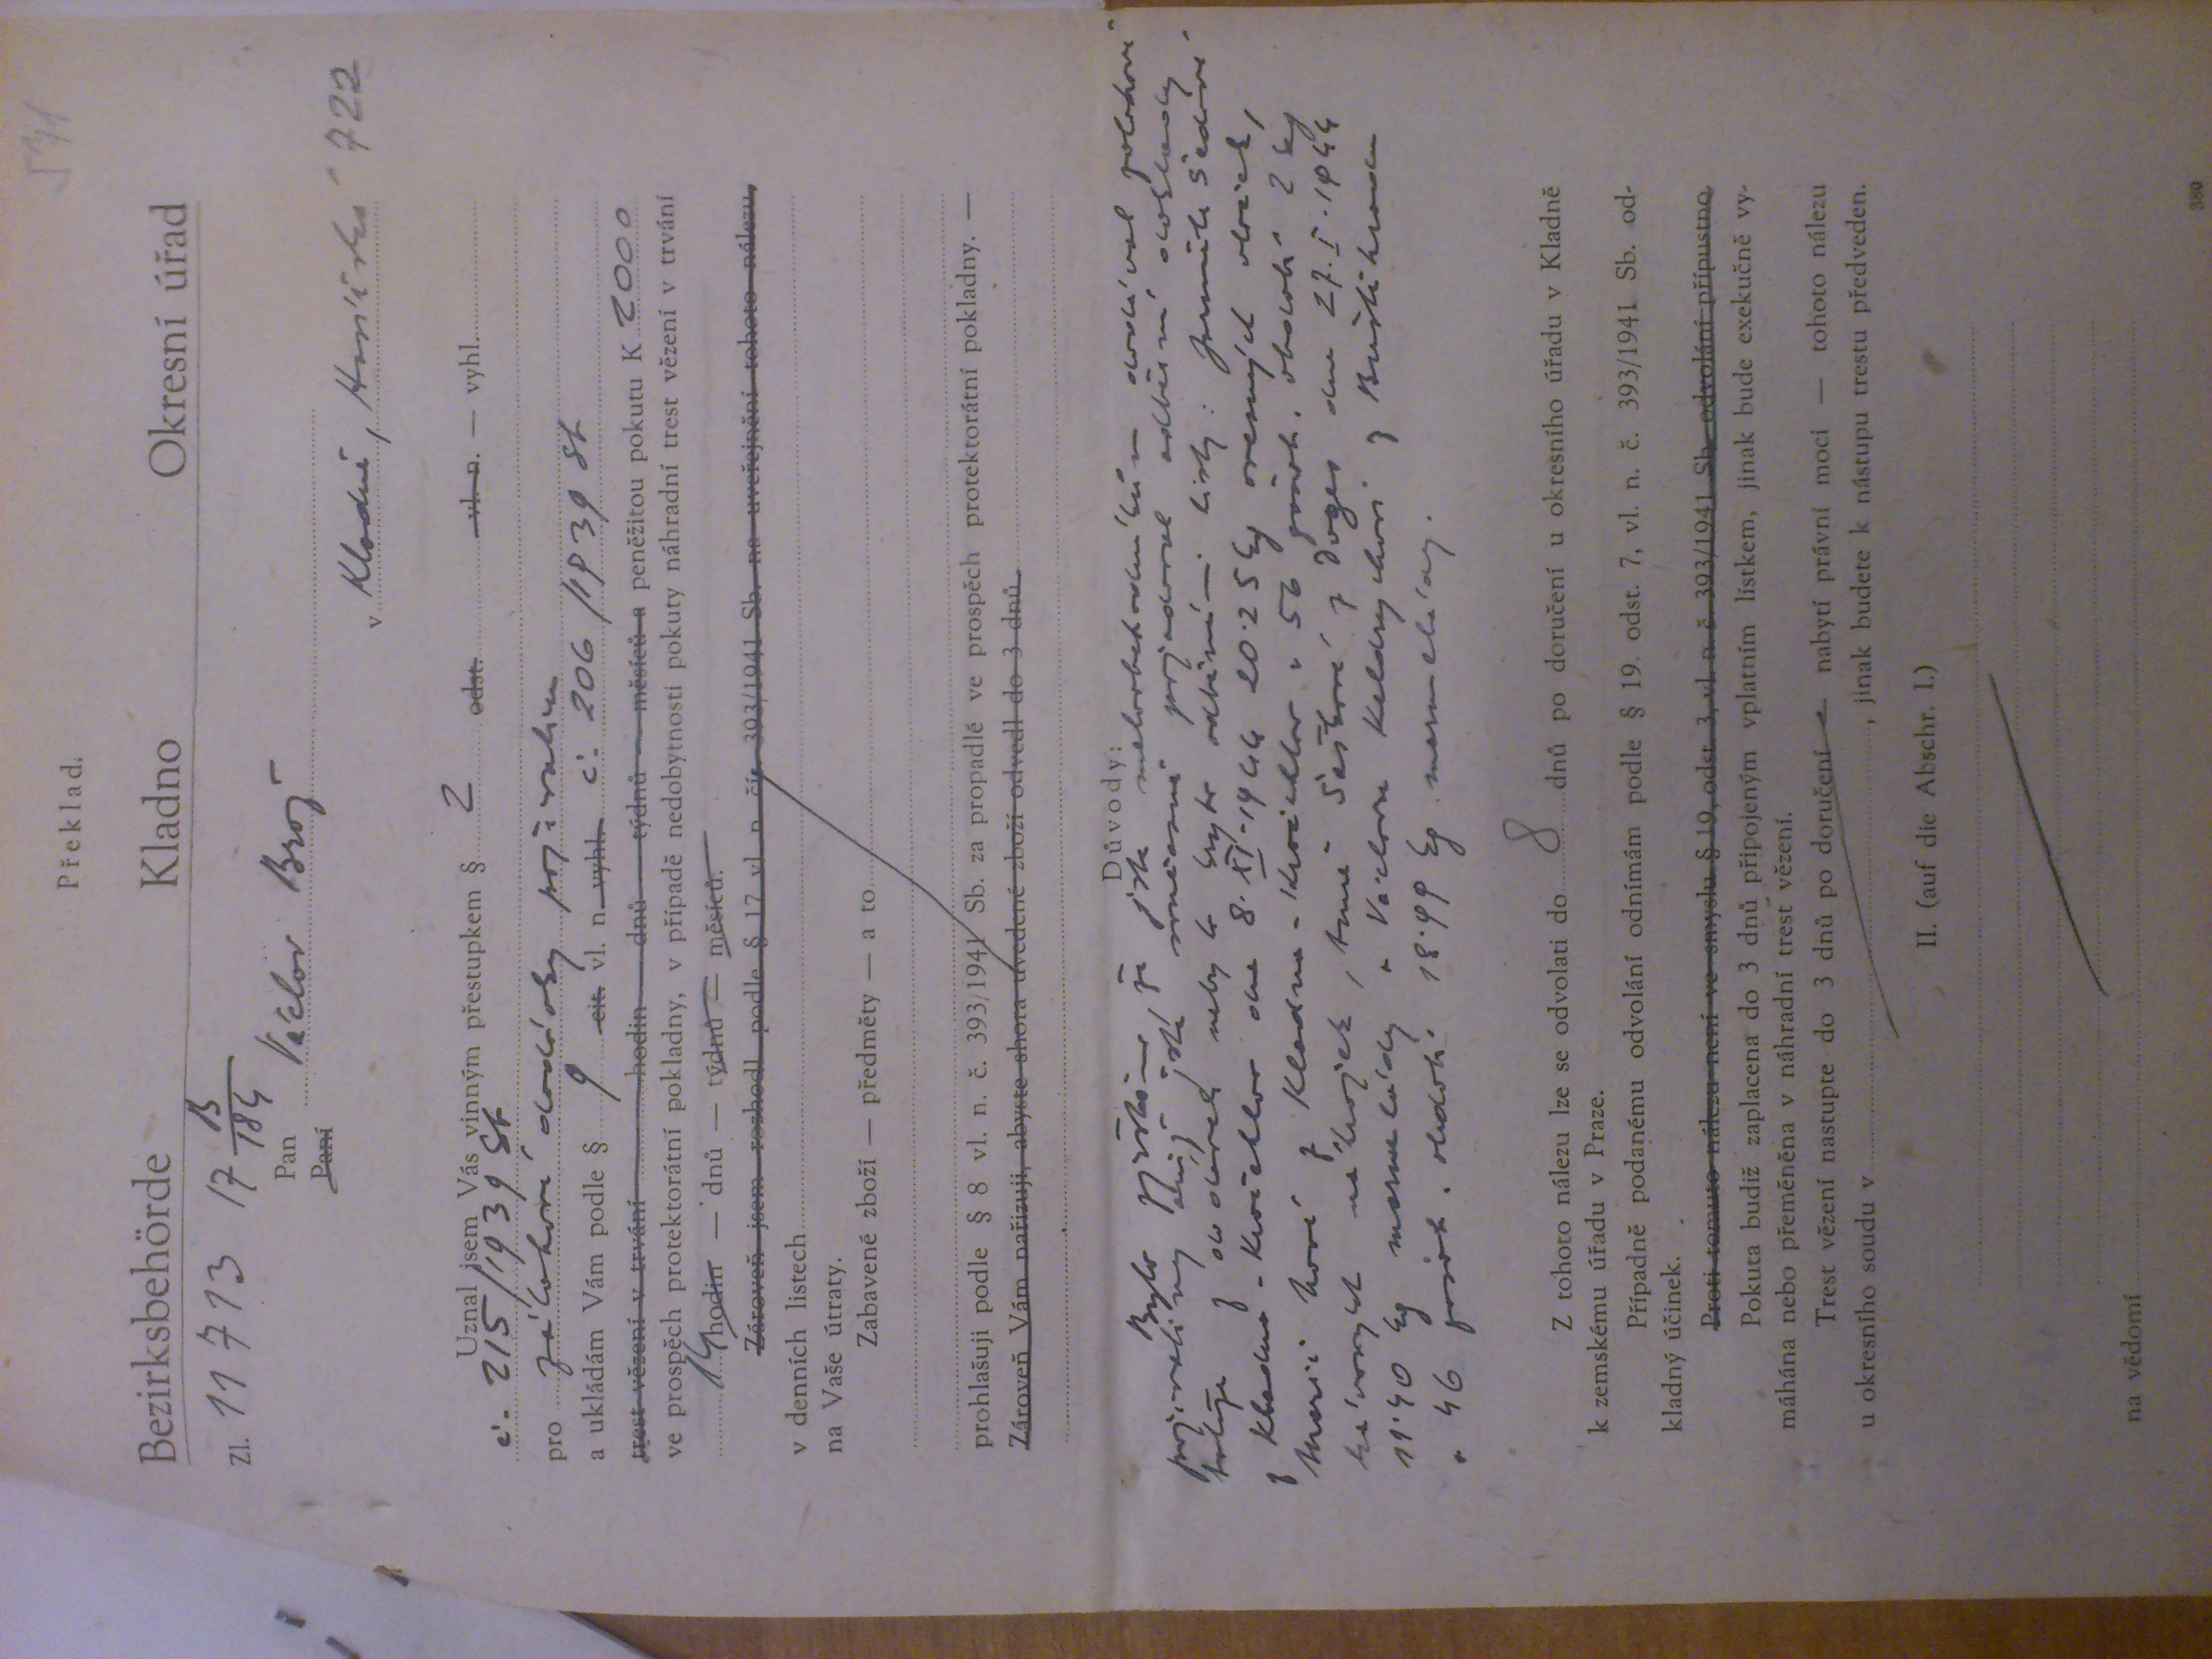 571
Překlad.
Bezirksbehörde Kladno Okresní úřad
Zl. 11713 17 B/184
Pan Václav Brož
Paní
v Kladně, 722
Uznal jsem Vás vinným přestupkem § 2 odst. vl. n. — vyhl.
č. 215/1939 Sb
pro zálohové dodávky poživatin
a ukládám Vám podle § 9 cit. vl. n. vyhl. č. 206/1939 Sb
trest vězení v trvání hodin dnů týdnů — měsíců a peněžitou pokutu K 2000
ve prospěch protektorátní pokladny, v případě nedobytnosti pokuty náhradní trest vězení v trvání
14 hodin — dnů — týdnů — měsíců.
Zároveň jsem rozhodl podle § 17 vl. n. čís. 393/1941 Sb. na uveřejnění tohoto nálezu,
v denních listech
na Vaše útraty.
Zabavené zboží — předměty — a to
prohlašuji podle § 8 vl. n. č. 393/1941 Sb. za propadlé ve prospěch protektorátní pokladny. —
Zároveň Vám nařizuji, abyste shora uvedené zboží odvedl do 3 dnů
Důvody:
Bylo zjištěno, že jste maloobchodníkům dodával zálohově
poživatiny aniž jste současně požadoval odběrní doklady
takže z dodávek nebylo kryto odběrními listy: Jarmile Šedivé
z Kladna - Kročehlav dne 8. XI. 1944 20.25 kg ovesných vloček,
Marii z Kladna - Kročehlav v 56 zásob. období 2 kg
kávových náhražek, Anně z dne 27. I. 1944
11.40 kg marmelády a Václavu z Buštěhradu
v 46 zásob. období 18.99 kg marmelády.
Z tohoto nálezu lze se odvolati do 8 dnů po doručení u okresního úřadu v Kladně
k zemskému úřadu v Praze.
Případně podanému odvolání odnímám podle § 19. odst. 7, vl. n. č. 393/1941 Sb. od-
kladný účinek.
Proti tomuto nálezu není ve smyslu § 19, odst. 3, vl. n. č. 393/1941 Sb. odvolání přípustno
Pokuta budiž zaplacena do 3 dnů připojeným vplatním lístkem, jinak bude exekučně vy-
máhána nebo přeměněna v náhradní trest vězení.
Trest vězení nastupte do 3 dnů po doručení — nabytí právní moci — tohoto nálezu
u okresního soudu v , jinak budete k nástupu trestu předveden.
II. (auf die Abschr. I.)
na vědomí
380